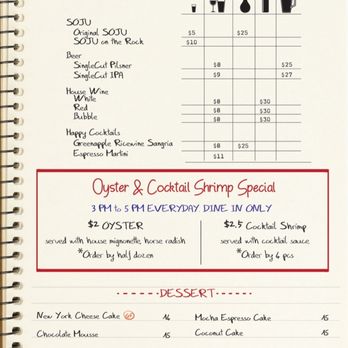 SOJU
Original SOJU $5 $25
SOJU on the Rock $10
Beer
SingleCut Pilsner $8 $25
SingleCut IPA $9 $27
House Wine
White $8 $30
Red $8 $30
Bubble $8 $30
Happy Cocktails
Greenapple Ricewine Sangria $8 $25
Espresso Martini $11
Oyster & Cocktail Shrimp Special
3 PM to 5 PM EVERYDAY DINE IN ONLY
$2 OYSTER
served with house mignonette, horse radish
*Order by half dozen
$2.5 Cocktail Shrimp
served with cocktail sauce
*Order by 6 pcs
DESSERT
New York Cheese Cake 14
Chocolate Mousse 15
Mocha Espresso Cake 15
Coconut Cake 15